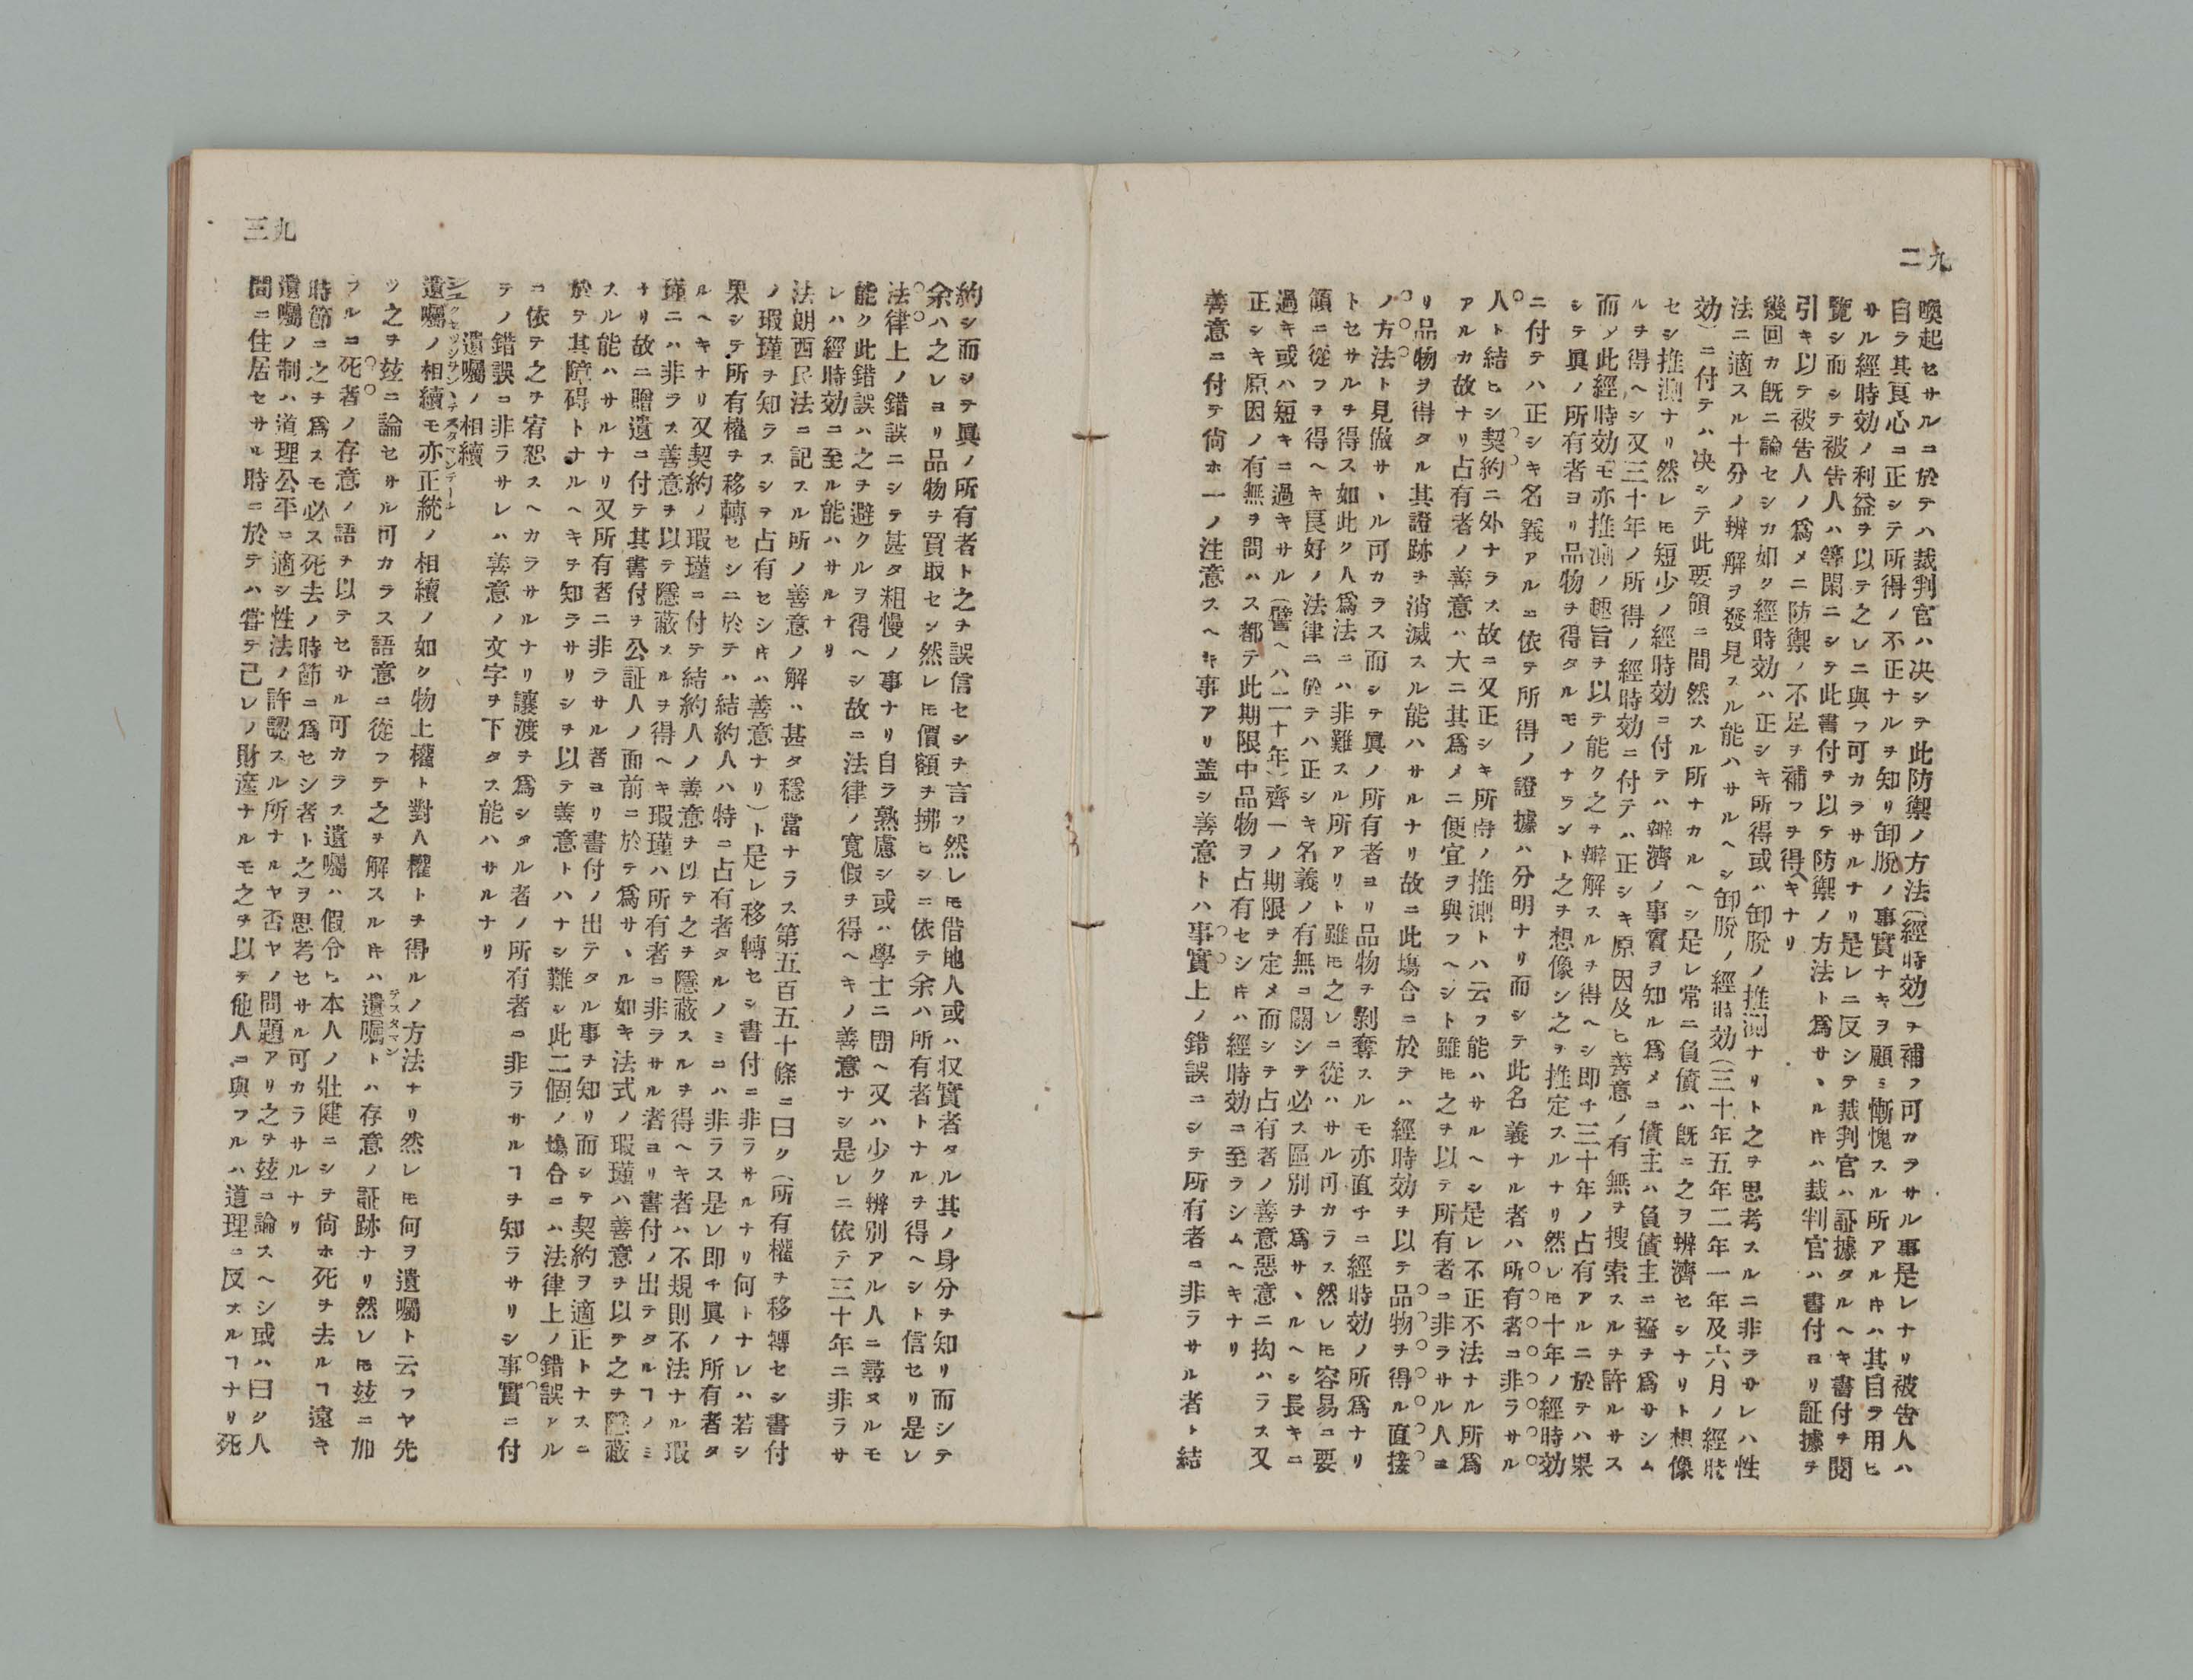 九二
喚起セサルニ於テハ裁判官ハ决シテ此防禦ノ方法(經時効)ヲ補フ可カラサル事是レナリ被告人ハ
自ラ其良心ニ正シテ所得ノ不正ナルヲ知リ卸脱ノ事實ナキヲ顧ミ慚愧スル所アルキハ其自ラ用ヒ
サル經時効ノ利益ヲ以テ之レニ與フ可カラサルナリ是レニ反シテ裁判官ハ証據タルヘキ書付ヲ閲
覽シ而シテ被告人ハ等閑ニシテ此書付ヲ以テ防禦ノ方法ト爲サヽルキハ裁判官ハ書付ヨリ証據ヲ
引キ以テ被告人ノ爲メニ防禦ノ不足ヲ補フヲ得ヘキナリ
幾回カ既ニ論セシカ如ク經時効ハ正シキ所得或ハ卸脱ノ推測ナリト之ヲ思考スルニ非ラサレハ性
法ニ適スル十分ノ辨解ヲ發見スル能ハサルヘシ卸脱ノ經時効(三十年五年二年一年及六月ノ經時
効)ニ付テハ决シテ此要領ニ間然スル所ナカルヘシ是レ常ニ負債ハ既ニ之ヲ辨濟セシナリト想像
セシ推測ナリ然レ𪜈短少ノ經時効ニ付テハ辨濟ノ事實ヲ知ル爲メニ債主ハ負債主ニ誓ヲ爲サシム
ルヲ得ヘシ又三十年ノ所得ノ經時効ニ付テハ正シキ原因及ヒ善意ノ有無ヲ搜索スルヲ許ルサス
而〆此經時効モ亦推測ノ趣旨ヲ以テ能ク之ヲ辨解スルヲ得ヘシ即チ三十年ノ占有アルニ於テハ果
シテ眞ノ所有者ヨリ品物ヲ得タルモノナラント之ヲ想像シ之ヲ推定スルナリ然レ𪜈十年ノ經時効
ニ付テハ正シキ名義アルニ依テ所得ノ證據ハ分明ナリ而シテ此名義ナル者ハ所有者ニ非ラサル
人ト結ヒシ契約ニ外ナラス故ニ又正シキ所得ノ推測トハ云フ能ハサルヘシ是レ不正不法ナル所爲
アルカ故ナリ占有者ノ善意ハ大ニ其爲メニ便宜ヲ與フヘシト雖𪜈之ヲ以テ所有者ニ非ラサル人ヨ
リ品物ヲ得タル其證跡ヲ消滅スル能ハサルナリ故ニ此塲合ニ於テハ經時効ヲ以テ品物ヲ得ル直接
ノ方法ト見做サヽル可カラス而シテ眞ノ所有者ヨリ品物ヲ剝奪スルモ亦直チニ經時効ノ所爲ナリ
トセサルヲ得ス如此ク人爲法ニハ非難スル所アリト雖𪜈之レニ從ハサル可カラス然レ𪜈容易ニ要
領ニ從フヲ得ヘキ良好ノ法律ニ於テハ正シキ名義ノ有無ニ關シテ必ス區別ヲ爲サヽルヘシ長キニ
過キ或ハ短キニ過キサル(譬ヘハ二十年)齊一ノ期限ヲ定メ而シテ占有者ノ善意惡意ニ拘ハラス又
正シキ原因ノ有無ヲ問ハス都テ此期限中品物ヲ占有セシキハ經時効ニ至ラシムヘキナリ
善意ニ付テ尙ホ一ノ注意スヘキ事アリ盖シ善意トハ事實上ノ錯誤ニシテ所有者ニ非ラサル者ト結
九三
約シ而シテ眞ノ所有者ト之ヲ誤信セシヲ言フ然レ𪜈借地人或ハ収實者タル其ノ身分ヲ知リ而シテ
余ハ之レヨリ品物ヲ買取セシ然レ𪜈價額ヲ拂ヒシニ依テ余ハ所有者トナルヲ得ヘシト信セリ是レ
法律上ノ錯誤ニシテ甚タ粗慢ノ事ナリ自ラ熟慮シ或ハ學士ニ問ヘ又ハ少ク辨別アル人ニ尋ヌルモ
能ク此錯誤ハ之ヲ避クルヲ得ヘシ故ニ法律ノ寬假ヲ得ヘキノ善意ナシ是レニ依テ三十年ニ非ラサ
レハ經時効ニ至ル能ハサルナリ
法朗西民法ニ記スル所ノ善意ノ解ハ甚タ穩當ナラス第五百五十條ニ曰ク(所有權ヲ移轉セシ書付
ノ瑕瑾ヲ知ラスシテ占有セシキハ善意ナリ)ト是レ移轉セシ書付ニ非ラサルナリ何トナレハ若シ
果シテ所有權ヲ移轉セシニ於テハ結約人ハ特ニ占有者タルノミニハ非ラス是レ即チ眞ノ所有者タ
ルヘキナリ又契約ノ瑕瑾ニ付テ結約人ノ善意ヲ以テ之ヲ隱蔽スルヲ得ヘキ者ハ不規則不法ナル瑕
瑾ニハ非ラス善意ヲ以テ隱蔽スルヲ得ヘキ瑕瑾ハ所有者ニ非ラサル者ヨリ書付ノ出テタルヿノミ
ナリ故ニ贈遺ニ付テ其書付ヲ公証人ノ面前ニ於テ爲サヽル如キ法式ノ瑕瑾ハ善意ヲ以テ之ヲ隱蔽
スル能ハサルナリ又所有者ニ非ラサル者ヨリ書付ノ出テタル事ヲ知リ而シテ契約ヲ適正トナスニ
於テ其障碍トナルヘキヲ知ラサリシヲ以テ善意トハナシ難シ此二個ノ塲合ニハ法律上ノ錯誤アル
ニ依テ之ヲ宥恕スヘカラサルナリ讓渡ヲ爲シタル者ノ所有者ニ非ラサルヿヲ知ラサリシ事實ニ付
テノ錯誤ニ非ラサレハ善意ノ文字ヲ下タス能ハサルナリ
遺囑ノ相續
遺囑ノ相續モ亦正統ノ相續ノ如ク物上權ト對人權トヲ得ルノ方法ナリ然レ𪜈何ヲ遺囑ト云フヤ先
ツ之ヲ玆ニ論セサル可カラス語意ニ從フテ之ヲ解スルキハ遺囑トハ存意ノ証跡ナリ然レ𪜈玆ニ加
フルニ死者ノ存意ノ語ヲ以テセサル可カラス遺囑ハ假令ヒ本人ノ壯健ニシテ尙ホ死ヲ去ルヿ遠キ
時節ニ之ヲ爲スモ必ス死去ノ時節ニ爲セシ者ト之ヲ思考セサル可カラサルナリ
遺囑ノ制ハ道理公平ニ適シ性法ノ許認スル所ナルヤ否ヤノ問題アリ之ヲ玆ニ論スヘシ或ハ曰ク人
間ニ住居セサル時ニ於テハ甞テ己レノ財產ナルモ之ヲ以テ他人ニ與フルハ道理ニ反スルヿナリ死